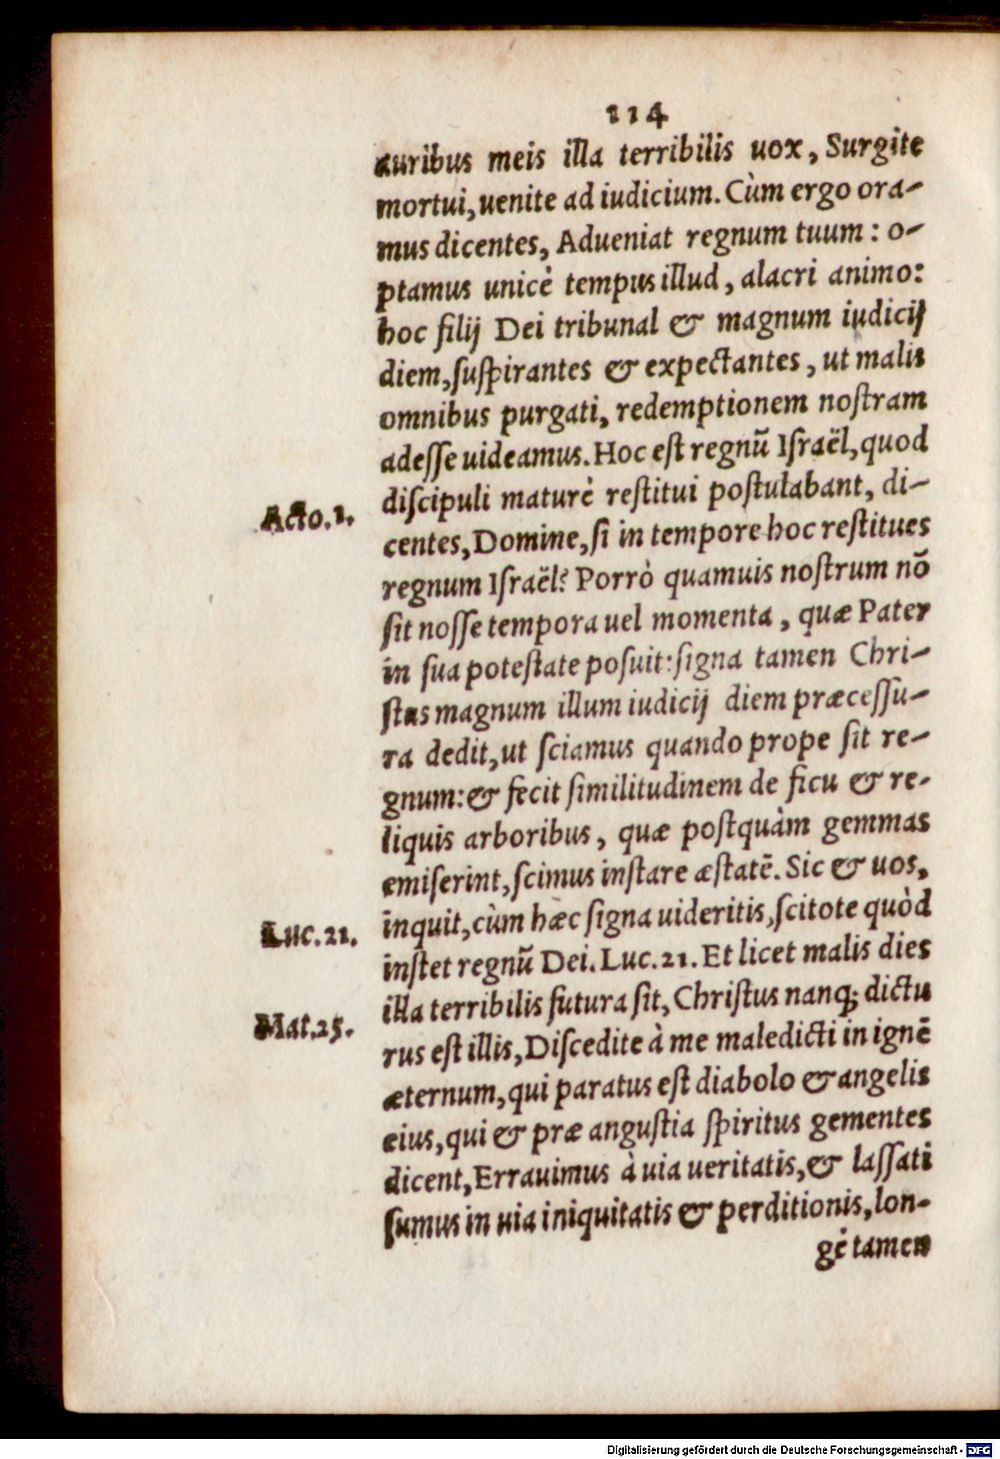 114
auribus meis illa terribilis uox, Surgite
mortui, uenite ad iudicium. Cùm ergo ora-
mus dicentes, Adueniat regnum tuum: o-
ptamus unicè tempus illud, alacri animo:
hoc filij Dei tribunal & magnum iudicij
diem, suspirantes & expectantes, ut malis
omnibus purgati, redemptionem nostram
adesse uideamus. Hoc est regnū Israël, quod
Acto.1.
discipuli maturè restitui postulabant, di-
centes, Domine, si in tempore hoc restitues
regnum Israël? Porrò quamuis nostrum nō
sit nosse tempora uel momenta, quæ Pater
in sua potestate posuit: signa tamen Chri-
stus magnum illum iudicij diem præcessu-
ra dedit, ut sciamus quando prope sit re-
gnum: & fecit similitudinem de ficu & re-
liquis arboribus, quæ postquàm gemmas
emiserint, scimus instare æstatē. Sic & uos,
Luc.21.
inquit, cùm hæc signa uideritis, scitote quòd
instet regnū Dei. Luc.21. Et licet malis dies
Mat.25.
illa terribilis futura sit, Christus nanq; dictu
rus est illis, Discedite à me maledicti in ignē
æternum, qui paratus est diabolo & angelis
eius, qui & præ angustia spiritus gementes
dicent, Errauimus à uia ueritatis, & lassati
sumus in uia iniquitatis & perditionis, lon-
gè tamen
Digitalisierung gefördert durch die Deutsche Forschungsgemeinschaft - DFG